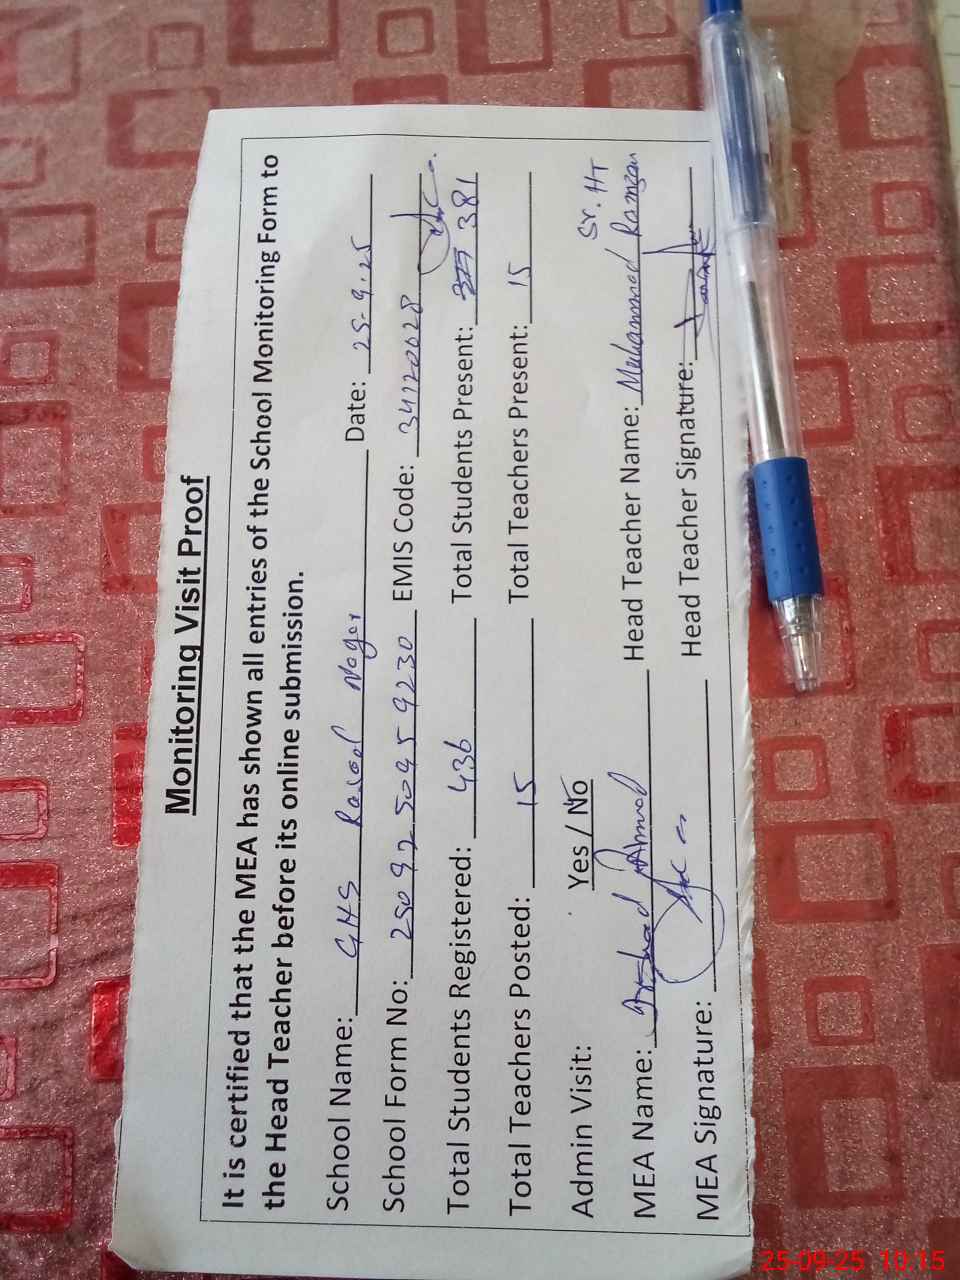 Monitoring Visit Proof
It is certified that the MEA has shown all entries of the School Monitoring Form to
the Head Teacher before its online submission.
School Name: GHS Rasool Nagar Date: 25-9-25
School Form No: 2509250459230 EMIS Code: 34120028
Total Students Registered: 436 Total Students Present: 381
Total Teachers Posted: 15 Total Teachers Present: 15
Admin Visit: Yes / No Sr. HT
MEA Name: Arshad Ahmad Head Teacher Name: Muhammad Ramzan
MEA Signature: Head Teacher Signature:
25-09-25 10:15